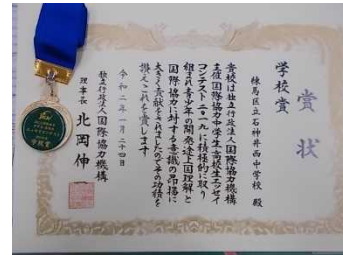 賞状
学校賞
練馬区立石神井西中学校 殿
貴校は独立行政法人国際協力機構
主催国際協力中学生・高校生エッセイ
コンテスト二〇一九に積極的に取り
組まれ青少年の開発途上国理解と
国際協力に対する意識の昂揚に
大きく貢献されましたのでその功績を
讃えこれを賞します
令和二年一月二十四日
独立行政法人国際協力機構
理事長 北岡伸一
学校賞